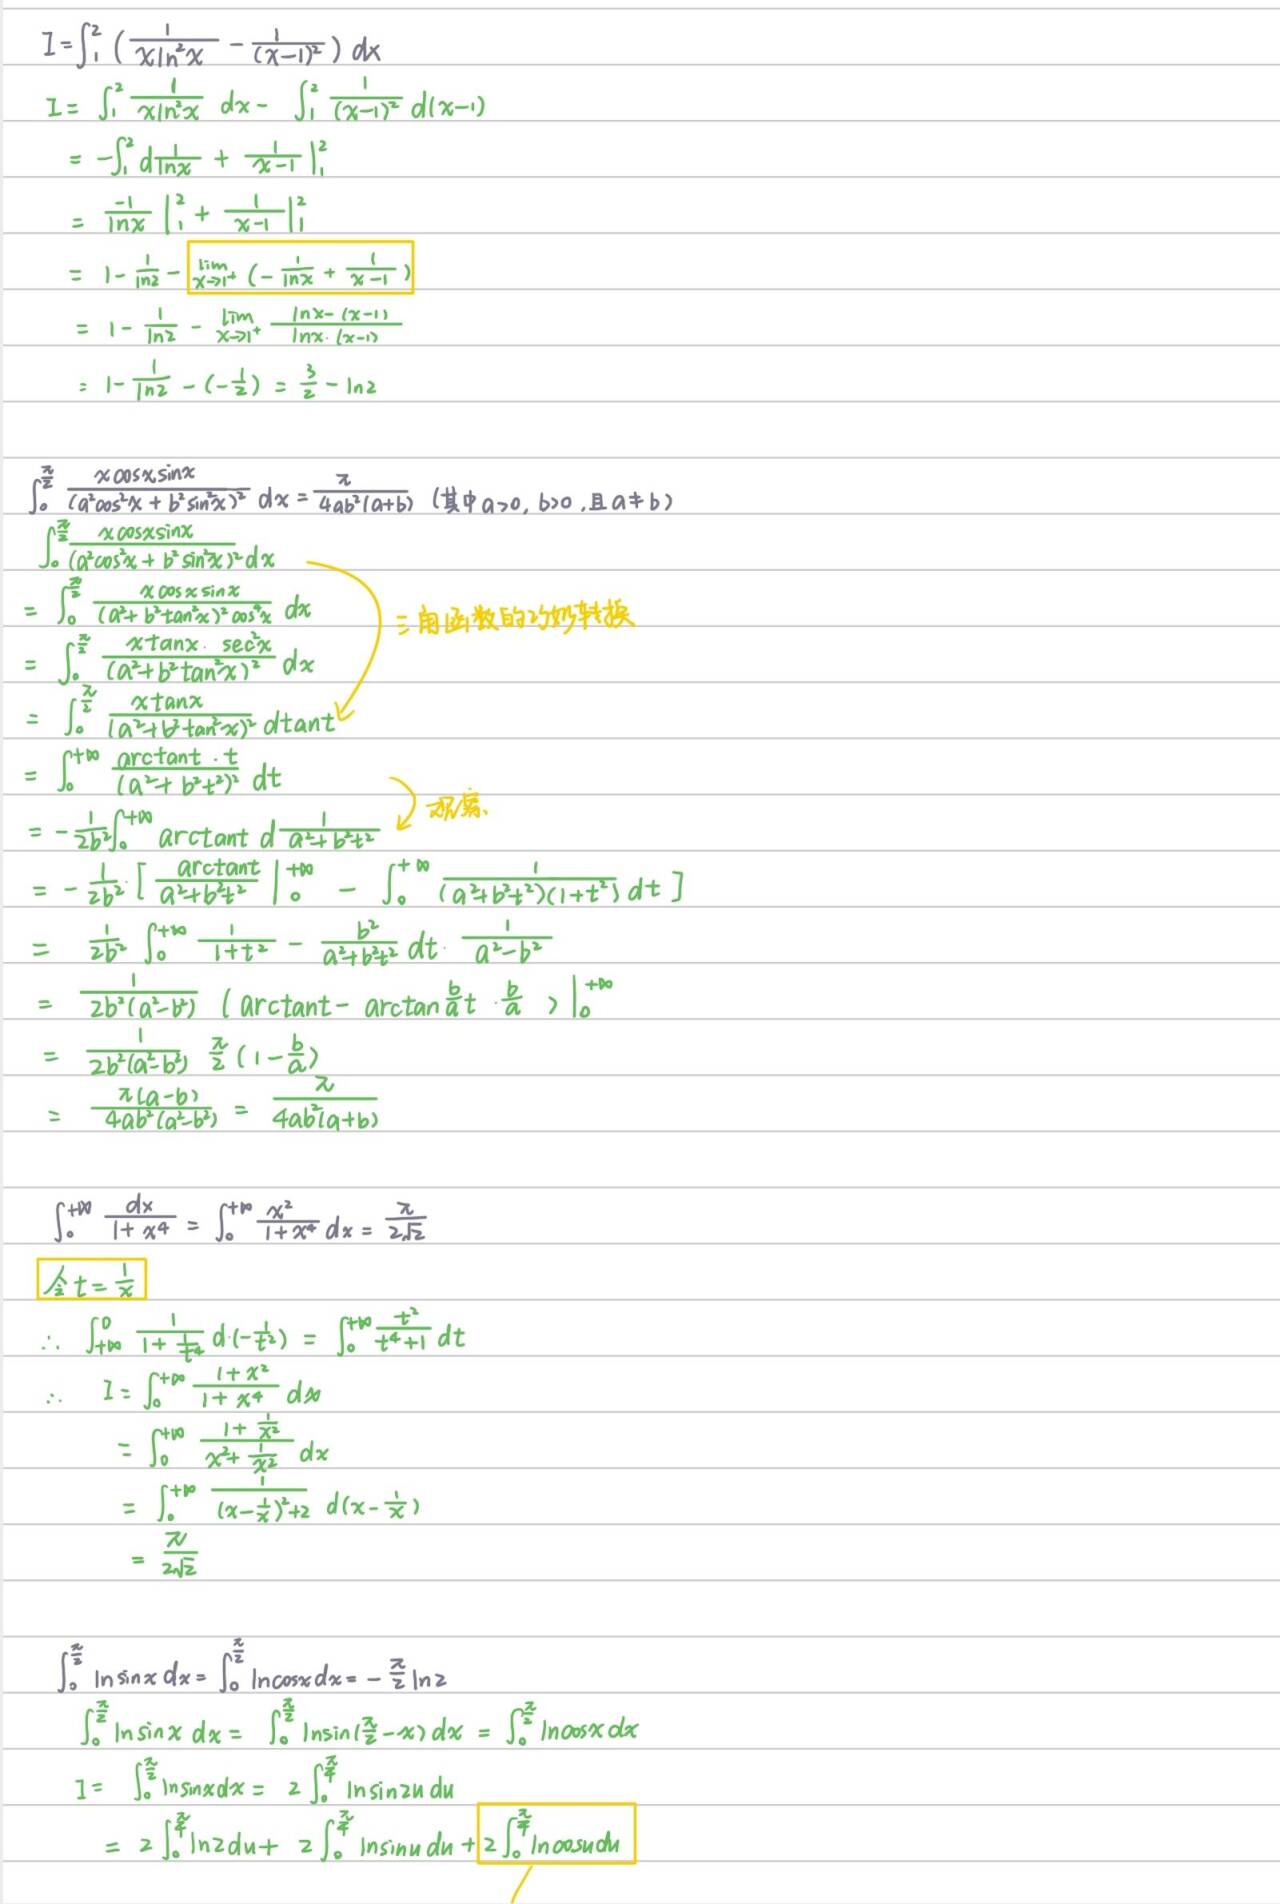 I=∫₁² (1/(xln²x) - 1/(x-1)²) dx
I= ∫₁² 1/(xln²x) dx - ∫₁² 1/(x-1)² d(x-1)
= -∫₁² d 1/lnx + 1/(x-1) |₁²
= -1/lnx |₁² + 1/(x-1) |₁²
= 1 - 1/ln2 - lim_{x→1⁺} (-1/lnx + 1/(x-1))
= 1 - 1/ln2 - lim_{x→1⁺} (lnx-(x-1))/(lnx·(x-1))
= 1 - 1/ln2 - (-1/2) = 3/2 - ln2
∫₀^{π/2} xcosxsinx/(a²cos²x + b²sin²x)² dx = π/(4ab²(a+b)) (其中a>0, b>0, 且a≠b)
∫₀^{π/2} xcosxsinx/(a²cos²x + b²sin²x)² dx
= ∫₀^{π/2} xcosxsinx/((a²+b²tan²x)²cos⁴x) dx
三角函数的巧妙转换
= ∫₀^{π/2} xtanx·sec²x/(a²+b²tan²x)² dx
= ∫₀^{π/2} xtanx/(a²+b²tan²x)² dtant
= ∫₀^{+∞} arctant·t/(a²+b²t²)² dt
观察
= -1/(2b²) ∫₀^{+∞} arctant d 1/(a²+b²t²)
= -1/(2b²)·[ arctant/(a²+b²t²) |₀^{+∞} - ∫₀^{+∞} 1/((a²+b²t²)(1+t²)) dt ]
= 1/(2b²) ∫₀^{+∞} 1/(1+t²) - b²/(a²+b²t²) dt· 1/(a²-b²)
= 1/(2b²(a²-b²)) (arctant - arctan b/a t · b/a) |₀^{+∞}
= 1/(2b²(a²-b²)) π/2 (1 - b/a)
= π(a-b)/(4ab²(a²-b²)) = π/(4ab²(a+b))
∫₀^{+∞} dx/(1+x⁴) = ∫₀^{+∞} x²/(1+x⁴) dx = π/(2√2)
令t=1/x
∴ ∫_{+∞}^0 1/(1+1/t⁴) d·(-1/t²) = ∫₀^{+∞} t²/(t⁴+1) dt
∴ I= ∫₀^{+∞} (1+x²)/(1+x⁴) dx
= ∫₀^{+∞} (1+1/x²)/(x²+1/x²) dx
= ∫₀^{+∞} 1/((x-1/x)²+2) d(x-1/x)
= π/(2√2)
∫₀^{π/2} lnsinx dx = ∫₀^{π/2} lncosx dx = -π/2 ln2
∫₀^{π/2} lnsinx dx = ∫₀^{π/2} lnsin(π/2-x) dx = ∫₀^{π/2} lncosx dx
I= ∫₀^{π/2} lnsinxdx = 2∫₀^{π/4} lnsin2u du
= 2∫₀^{π/4} ln2du + 2∫₀^{π/4} lnsinu du + 2∫₀^{π/4} lncosudu